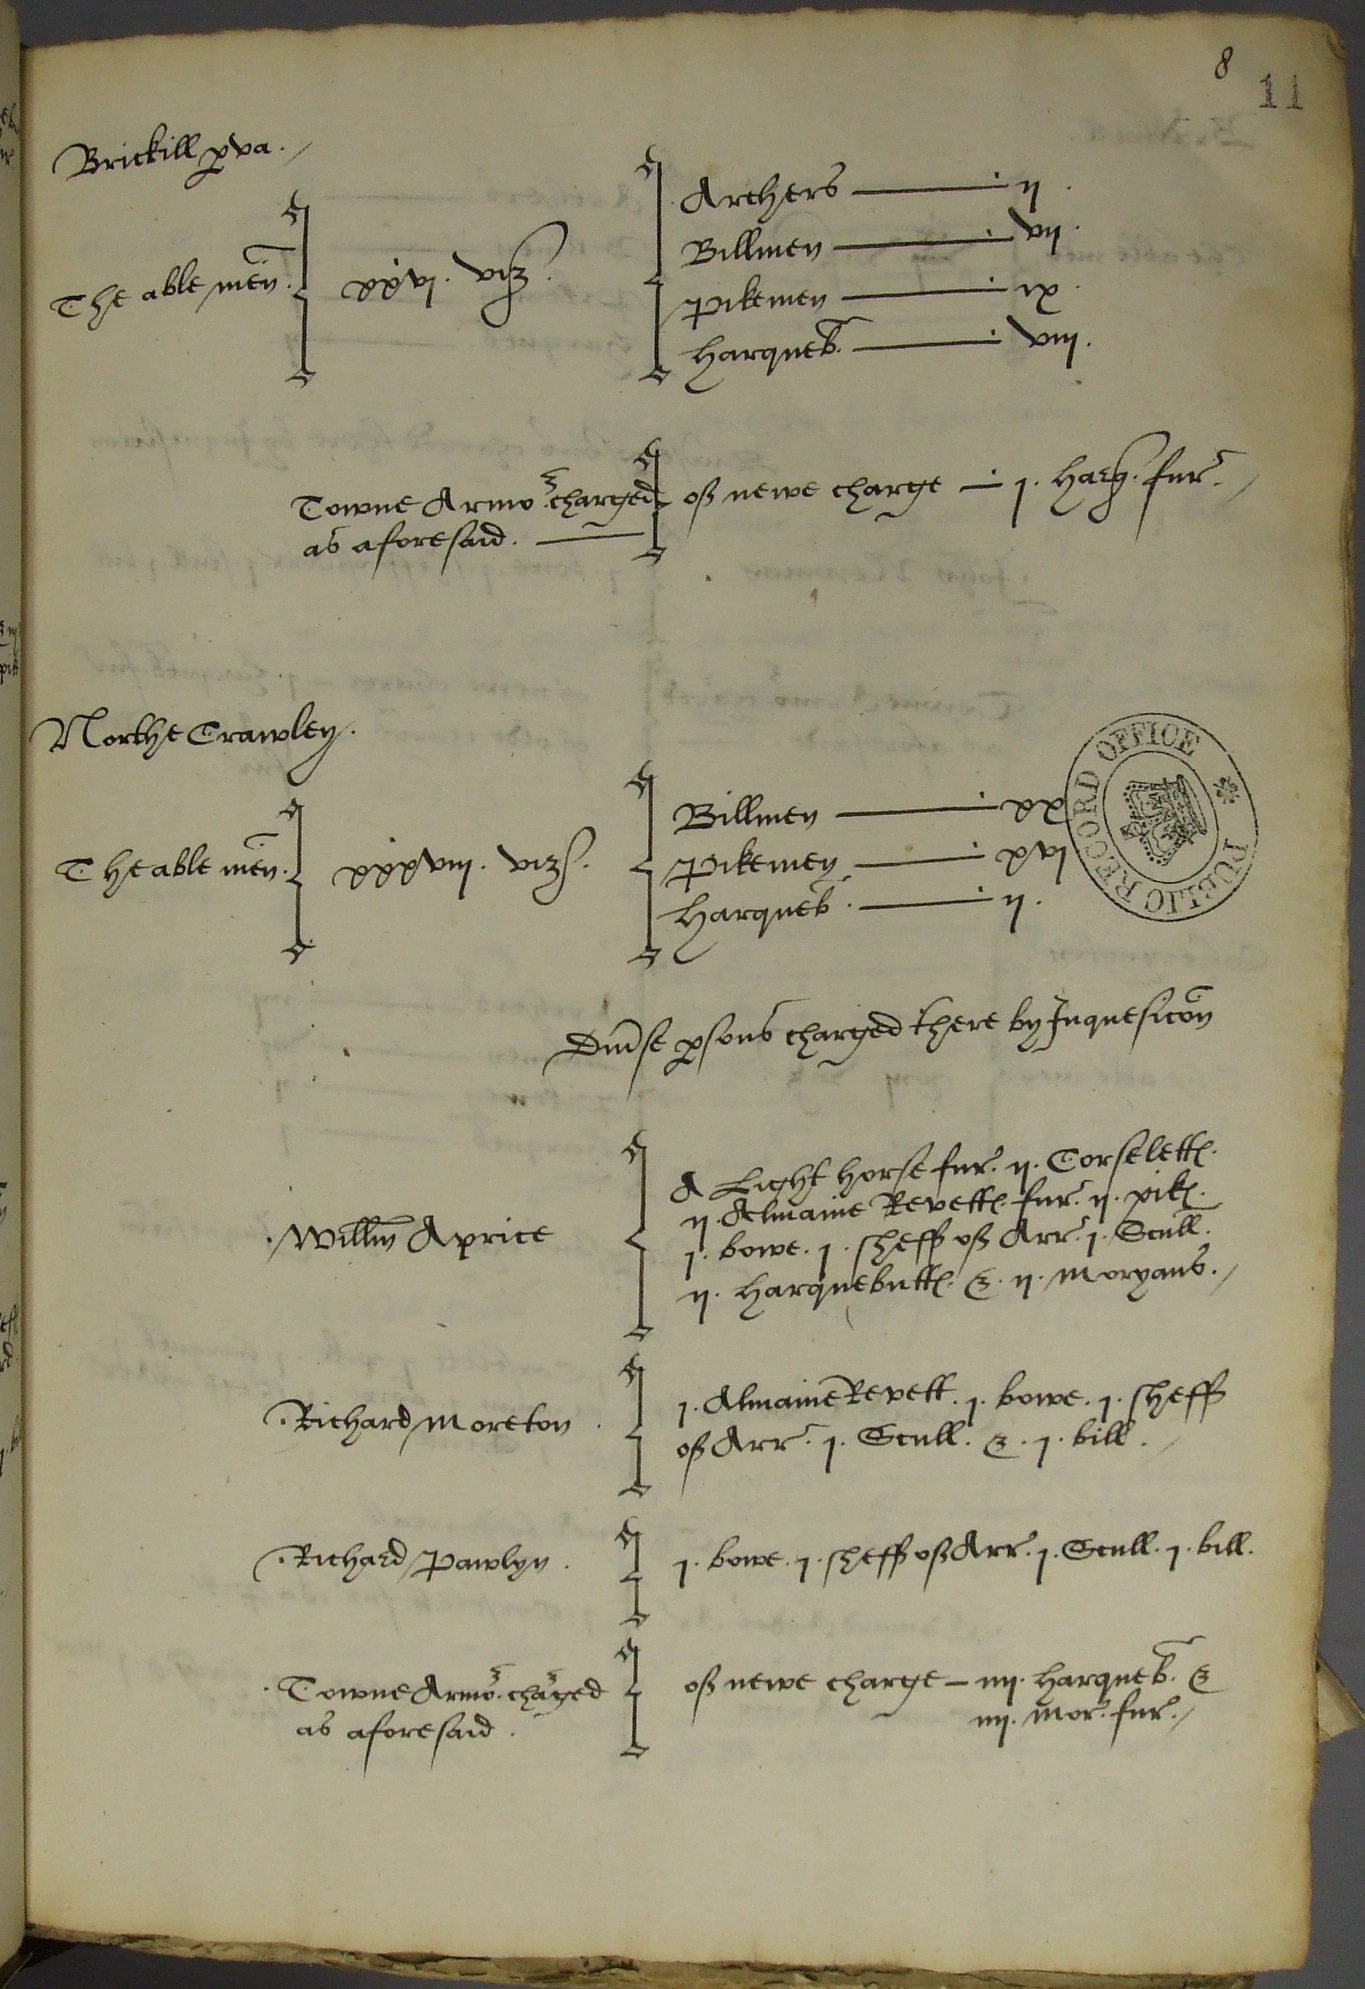 8
11
Brickill pva ./
The able men. xxvi. viz.
Archers — ij.
Billmen — vij.
Pikemen — ix.
Harqueb. — viij.
Towne Armor charged of newe charge — j. Harq. fur. /
as aforesaid.
Northe Crawley.
The able men. xxxviij. viz.
Billmen — xx
Pikemen — xvj
Harqueb. — ij.
PUBLIC RECORD OFFICE
Div'se psons charged there by Inquesicon
A Light horse fur. ij. Corselett.
ij. Almaine Revett. fur. ij. pik.
Willm Aprice
j. bowe. j. sheff of Arr. j. Scull.
ij. harquebutt. & ij. moryans. /
Richard Moreton. j. Almaine Revett. j. bowe. j. sheff
of Arr. j. Scull. & j. bill. /
Richard Pawlyn. j. bowe. j. sheff of Arr. j. Scull. j. bill.
Towne Armor charged of newe charge — iiij. harqueb. &
as aforesaid. iiij. mor. fur. /